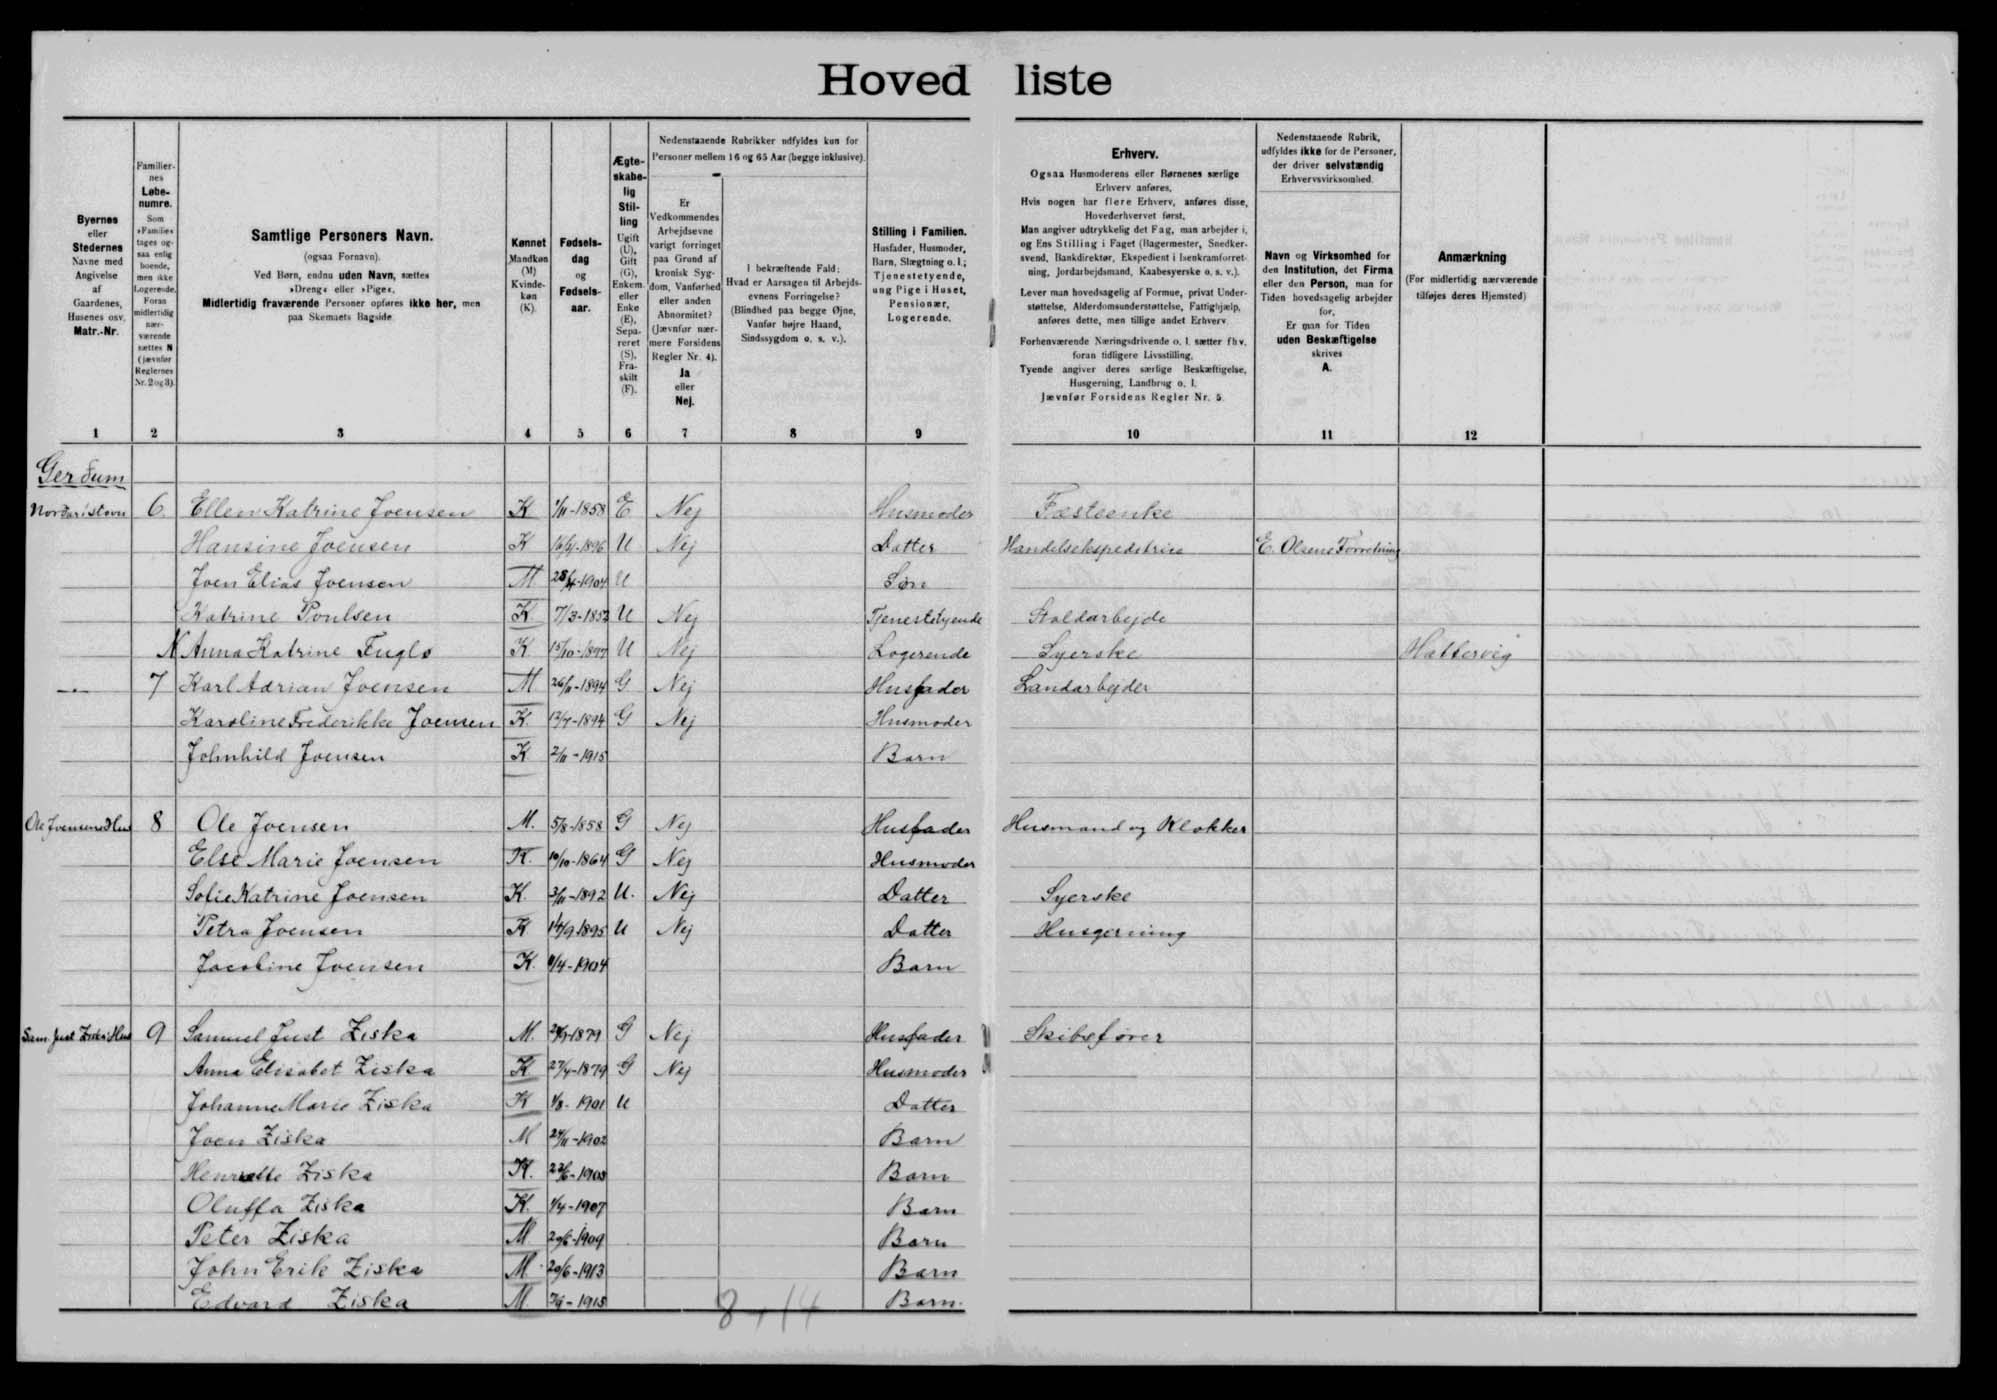 Hovedliste
Byernes eller Stedernes Navne med Angivelse af Gaardenes, Husenes osv. Matr.-Nr.
Familiernes Løbenumre. Som »Familie« tages ogsaa enlig boende, men ikke Logerende. Foran midlertidig nærværende sættes N (jævnfør Reglernes Nr. 2 og 3).
Samtlige Personers Navn.
(ogsaa Fornavn).
Ved Børn, endnu uden Navn, sættes
»Dreng« eller »Pige«.
Midlertidig fraværende Personer opføres ikke her, men
paa Skemaets Bagside.
Kønnet Mandkøn (M) Kvindekøn (K).
Fødselsdag og Fødselsaar.
Ægteskabelig Stilling Ugift (U), Gift (G), Enkem. eller Enke (E), Separeret (S), Fraskilt (F).
Nedenstaaende Rubrikker udfyldes kun for
Personer mellem 16 og 65 Aar (begge inklusive).
Er Vedkommendes Arbejdsevne varigt forringet paa Grund af kronisk Sygdom, Vanførhed eller anden Abnormitet? (Jævnfør nærmere Forsidens Regler Nr. 4). Ja eller Nej.
I bekræftende Fald: Hvad er Aarsagen til Arbejdsevnens Forringelse? (Blindhed paa begge Øjne, Vanfør højre Haand, Sindssygdom o. s. v.).
Stilling i Familien. Husfader, Husmoder, Barn, Slægtning o.l.; Tjenestetyende, ung Pige i Huset, Pensionær, Logerende.
Erhverv.
Ogsaa Husmoderens eller Børnenes særlige
Erhverv anføres.
Hvis nogen har flere Erhverv, anføres disse,
Hovederhvervet først.
Man angiver udtrykkelig det Fag, man arbejder i,
og Ens Stilling i Faget (Bagermester, Snedker-
svend, Bankdirektør, Ekspedient i Isenkramforret-
ning, Jordarbejdsmand, Kaabesyerske o. s. v.).
Lever man hovedsagelig af Formue, privat Under-
støttelse, Alderdomsunderstøttelse, Fattighjælp,
anføres dette, men tillige andet Erhverv.
Forhenværende Næringsdrivende o. l. sætter fhv.
foran tidligere Livsstilling.
Tyende angiver deres særlige Beskæftigelse,
Husgerning, Landbrug o. l.
Jævnfør Forsidens Regler Nr. 5.
Nedenstaaende Rubrik,
udfyldes ikke for de Personer,
der driver selvstændig
Erhvervsvirksomhed.
Navn og Virksomhed for
den Institution, det Firma
eller den Person, man for
Tiden hovedsagelig arbejder
for,
Er man for Tiden
uden Beskæftigelse
skrives
A.
Anmærkning
(For midlertidig nærværende
tilføjes deres Hjemsted)
1 2 3 4 5 6 7 8 9 10 11 12
Gerðum
Norðaristovu 6. Ellen Katrine Joensen K 1/11-1858 E Nej Husmoder Fæsteenke
Hansine Joensen K U Nej Datter Handelsekspedetrice E. Olsens Forretning
Joen Elias Joensen M 28/4-1904 U Søn
Katrine Poulsen K 7/3-1852 U Nej Tjenestetyende Staldarbejde
N Anna Katrine Fuglø K 15/10-1897 U Nej Logerende Syerske Hattervig
-"- 7 Karl Adrian Joensen M 26/11-1894 G Nej Husfader Landarbejder
Karoline Frederikke Joensen K. 13/7-1894 G Nej Husmoder
Johnhild Joensen K 2/11-1915 Barn
Ole Joensens Hus 8 Ole Joensen M. 5/8-1858 G Nej Husfader Husmand og Klokker
Else Marie Joensen K. 10/10-1864 G Nej Husmoder
Sofie Katrine Joensen K. 3/11-1892 U. Nej Datter Syerske
Petra Joensen K 14/9-1895 U Nej Datter Husgerning
Jacobine Joensen K. Barn
Sam. Just Ziskas Hus 9 Samuel Just Ziska M. G Nej Husfader Skibsfører
Anna Elisabet Ziska K 27/4-1879 G Nej Husmoder
Johanne Marie Ziska K 1/8-1901 U Datter
Joen Ziska M 24/11-1902 Barn
Henriette Ziska K. Barn
Oluffa Ziska K. 1/4-1907 Barn
Peter Ziska M 29/6-1909 Barn
John Erik Ziska M. 20/6-1913 Barn
Edvard Ziska M. Barn.
8+14